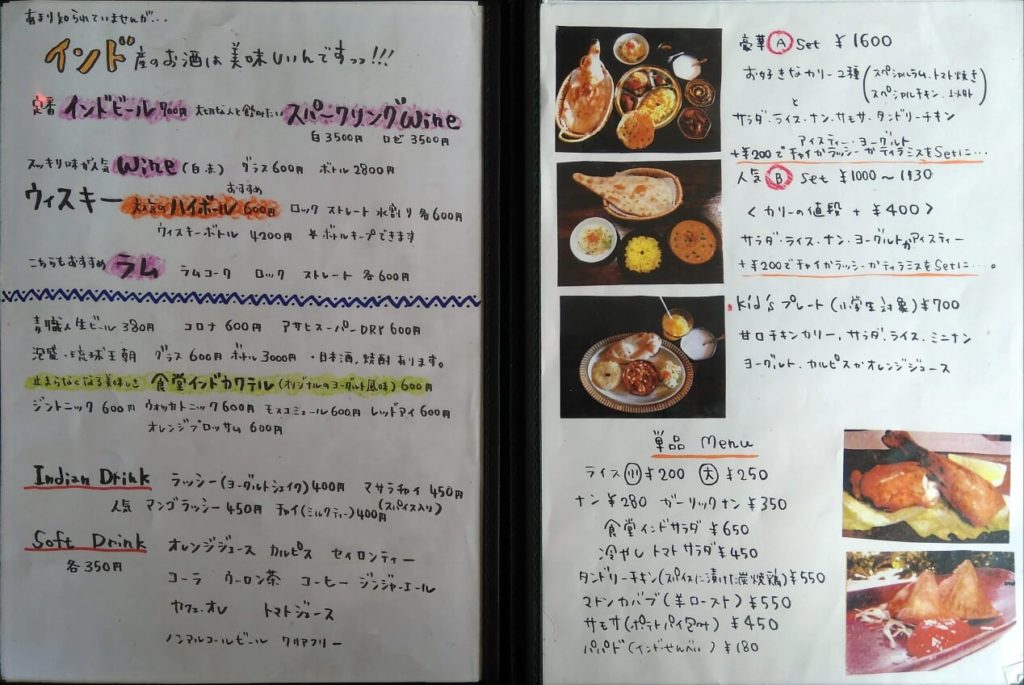 あまり知られていませんが...
インド産のお酒は美味しいんですっっ!!!
定番 インドビール 700円 大切な人と飲みたい スパークリングWine
白3500円 ロゼ3500円
スッキリ味が人気 Wine (白・赤) グラス600円 ボトル2800円
おすすめ
ウィスキー 人気のハイボール600円 ロック ストレート 水割り 各600円
ウィスキーボトル 4200円 ※ボトルキープできます
こちらもおすすめ ラム ラムコーク ロック ストレート 各600円
職人生ビール 380円 コロナ 600円 アサヒスーパーDRY 600円
泡盛・琉球王朝 グラス600円 ボトル3000円 ・日本酒、焼酎あります。
止まらなくなる美味しさ 食堂インドカクテル(オリジナルのヨーグルト風味)600円
ジントニック 600円 ウォッカトニック 600円 モスコミュール 600円 レッドアイ 600円
オレンジブロッサム 600円
Indian Drink ラッシー(ヨーグルトシェイク)400円 マサラチャイ 450円
(スパイス入り)
人気 マンゴラッシー 450円 チャイ(ミルクティー)400円
Soft Drink オレンジジュース カルピス セイロンティー
各350円
コーラ ウーロン茶 コーヒー ジンジャーエール
カフェ・オレ トマトジュース
ノンアルコールビール クリアフリー
豪華 A Set ¥1600
お好きなカリー2種 (スペシャルラム、トマト焼き
スペシャルチキン、以外)
と
サラダ・ライス・ナン・サモサ・タンドリーチキン
アイスティー・ヨーグルト
+¥200でチャイかラッシーかティラミスをSetに...
人気 B Set ¥1000〜1130
<カリーの値段 + ¥400>
サラダ・ライス・ナン・ヨーグルトかアイスティー
+¥200でチャイかラッシーかティラミスをSetに...。
Kid'sプレート(小学生対象)¥700
甘口チキンカリー、サラダ、ライス、ミニナン
ヨーグルト、カルピスかオレンジジュース
単品 Menu
ライス 小 ¥200 大 ¥250
ナン ¥280 ガーリックナン ¥350
食堂インドサラダ ¥650
冷やしトマトサラダ ¥450
タンドリーチキン(スパイスに漬けた炭焼鶏)¥550
マトンカバブ(羊ロースト)¥550
サモサ(ポテトパイ包み)¥450
パパド(インドせんべい)¥180